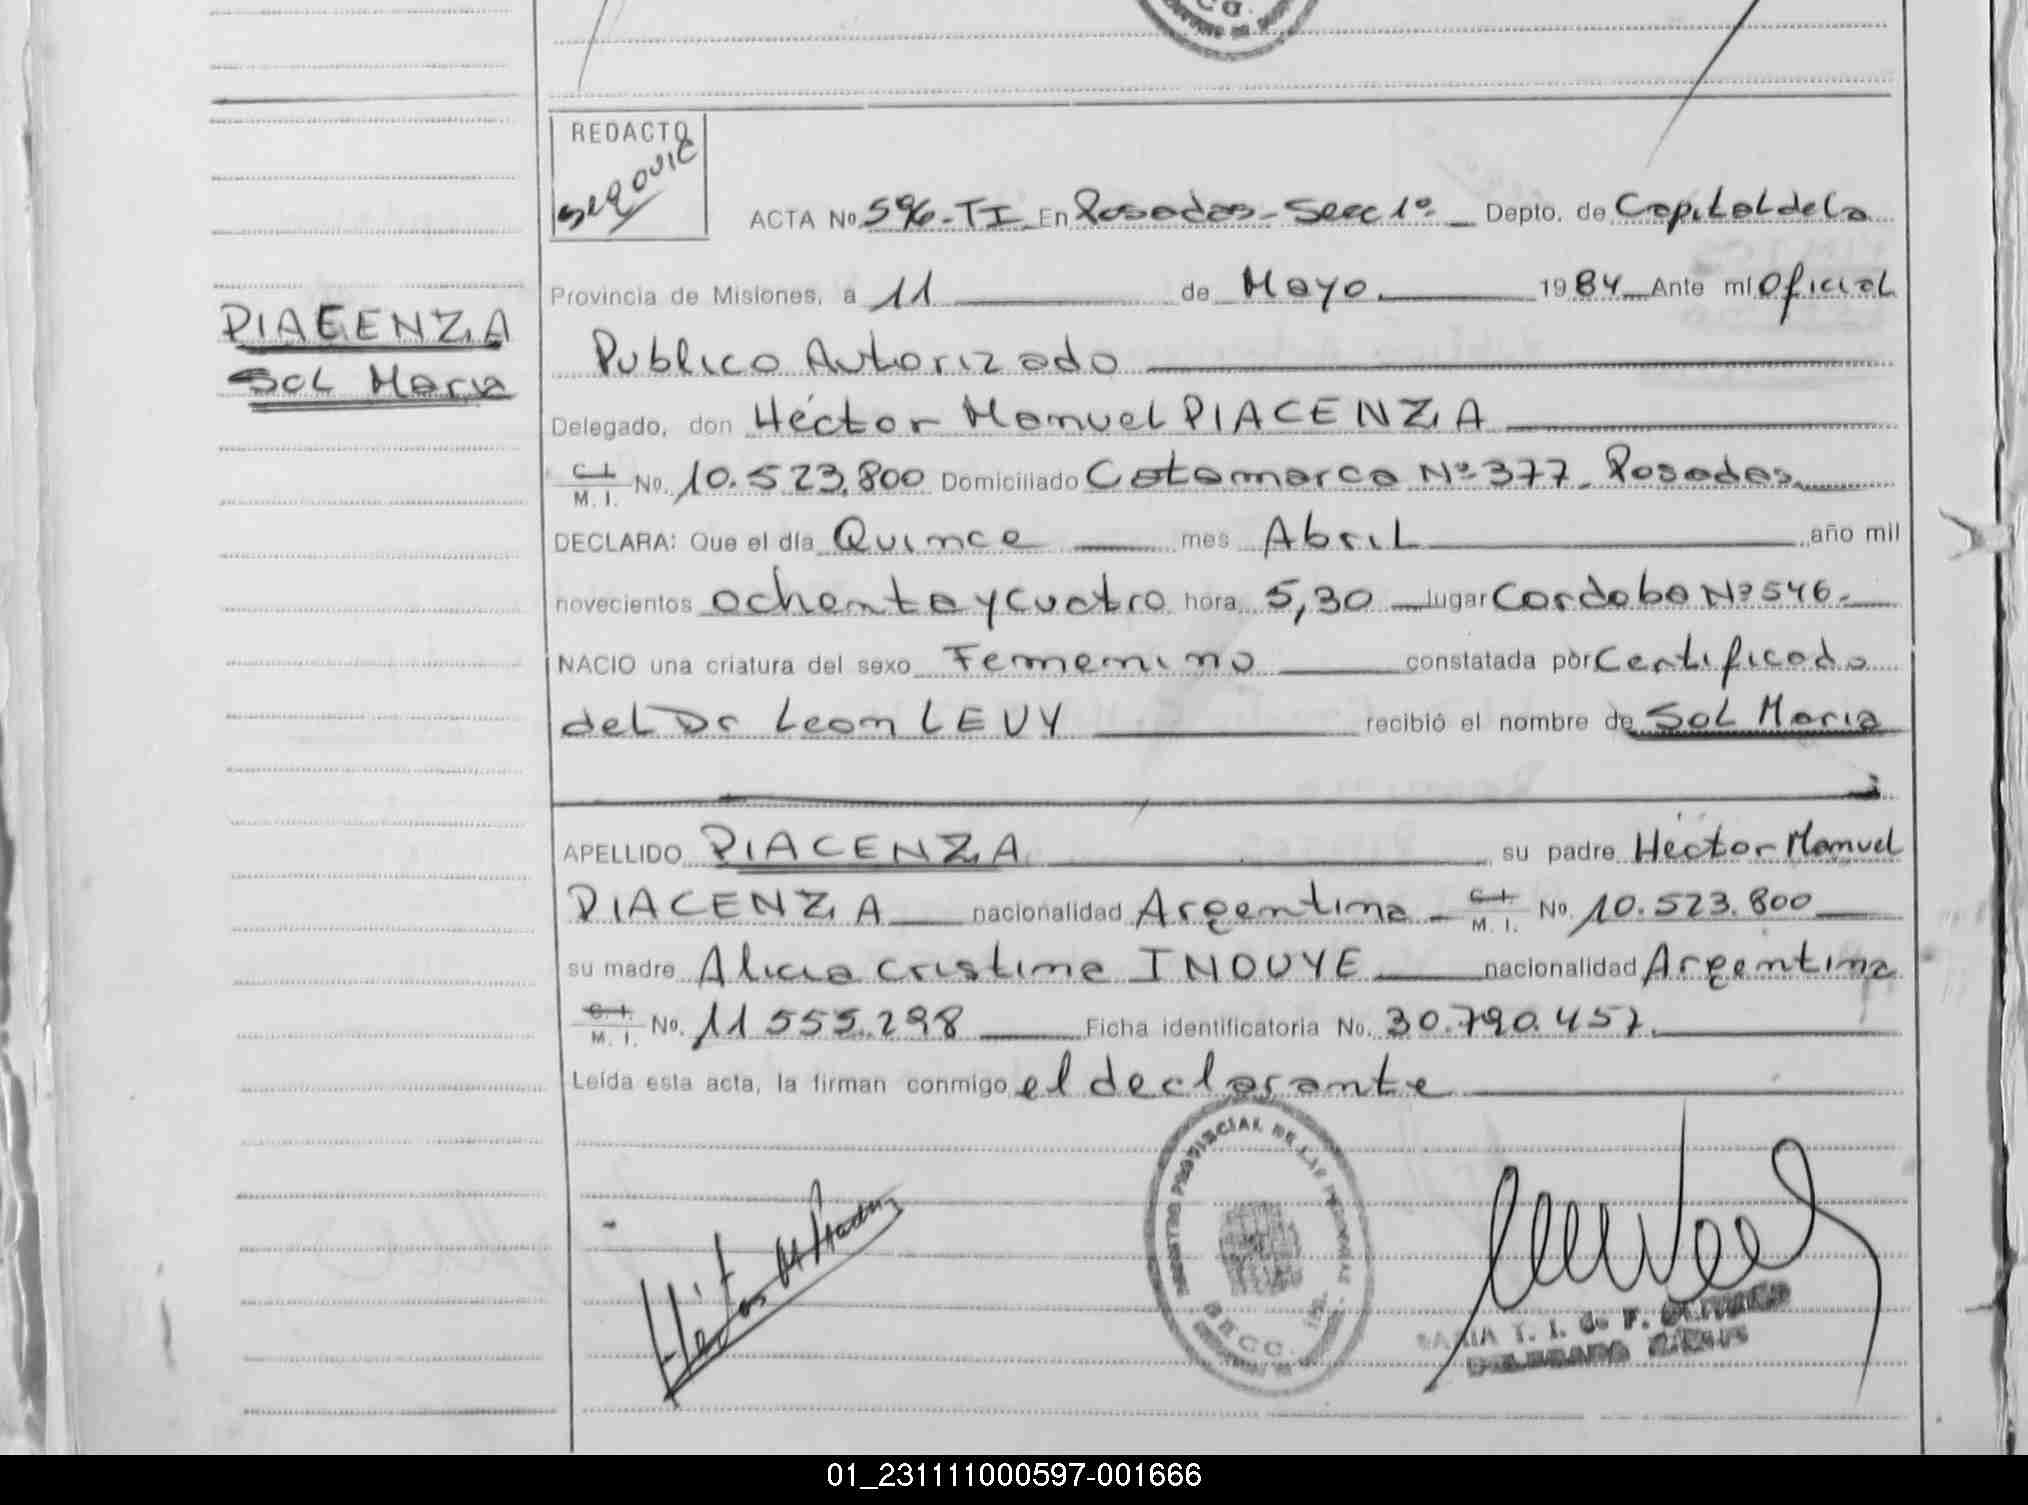 REDACTO
ACTA No 596-TI En Posadas-Secc 1º Depto. de Capital de la
Provincia de Misiones, a 11 de Mayo 1984 Ante mí Oficial
PIACENZA
Publico Autorizado
Sol Maria
Delegado, don Héctor Manuel PIACENZA
C.I. M. I. No. 10.523.800 Domiciliado Catamarca Nº 377 Posadas
DECLARA: Que el día Quince mes Abril año mil
novecientos ochenta y cuatro hora 5,30 lugar Cordoba Nº 546
NACIO una criatura del sexo Femenino constatada pòr Certificado
del Dr Leon LEVY recibió el nombre de Sol Maria
APELLIDO PIACENZA su padre Héctor Manuel
PIACENZA nacionalidad Argentina C.I. M. I. No. 10.523.800
su madre Alicia Cristina INOUYE nacionalidad Argentina
C.I. M. I. No. 11 555.298 Ficha identificatoria No. 30.790.457
Leída esta acta, la firman conmigo el declarante
REGISTRO PROVINCIAL DE LAS PERSONAS
T. I. de F.
DELEGADO
01_231111000597-001666